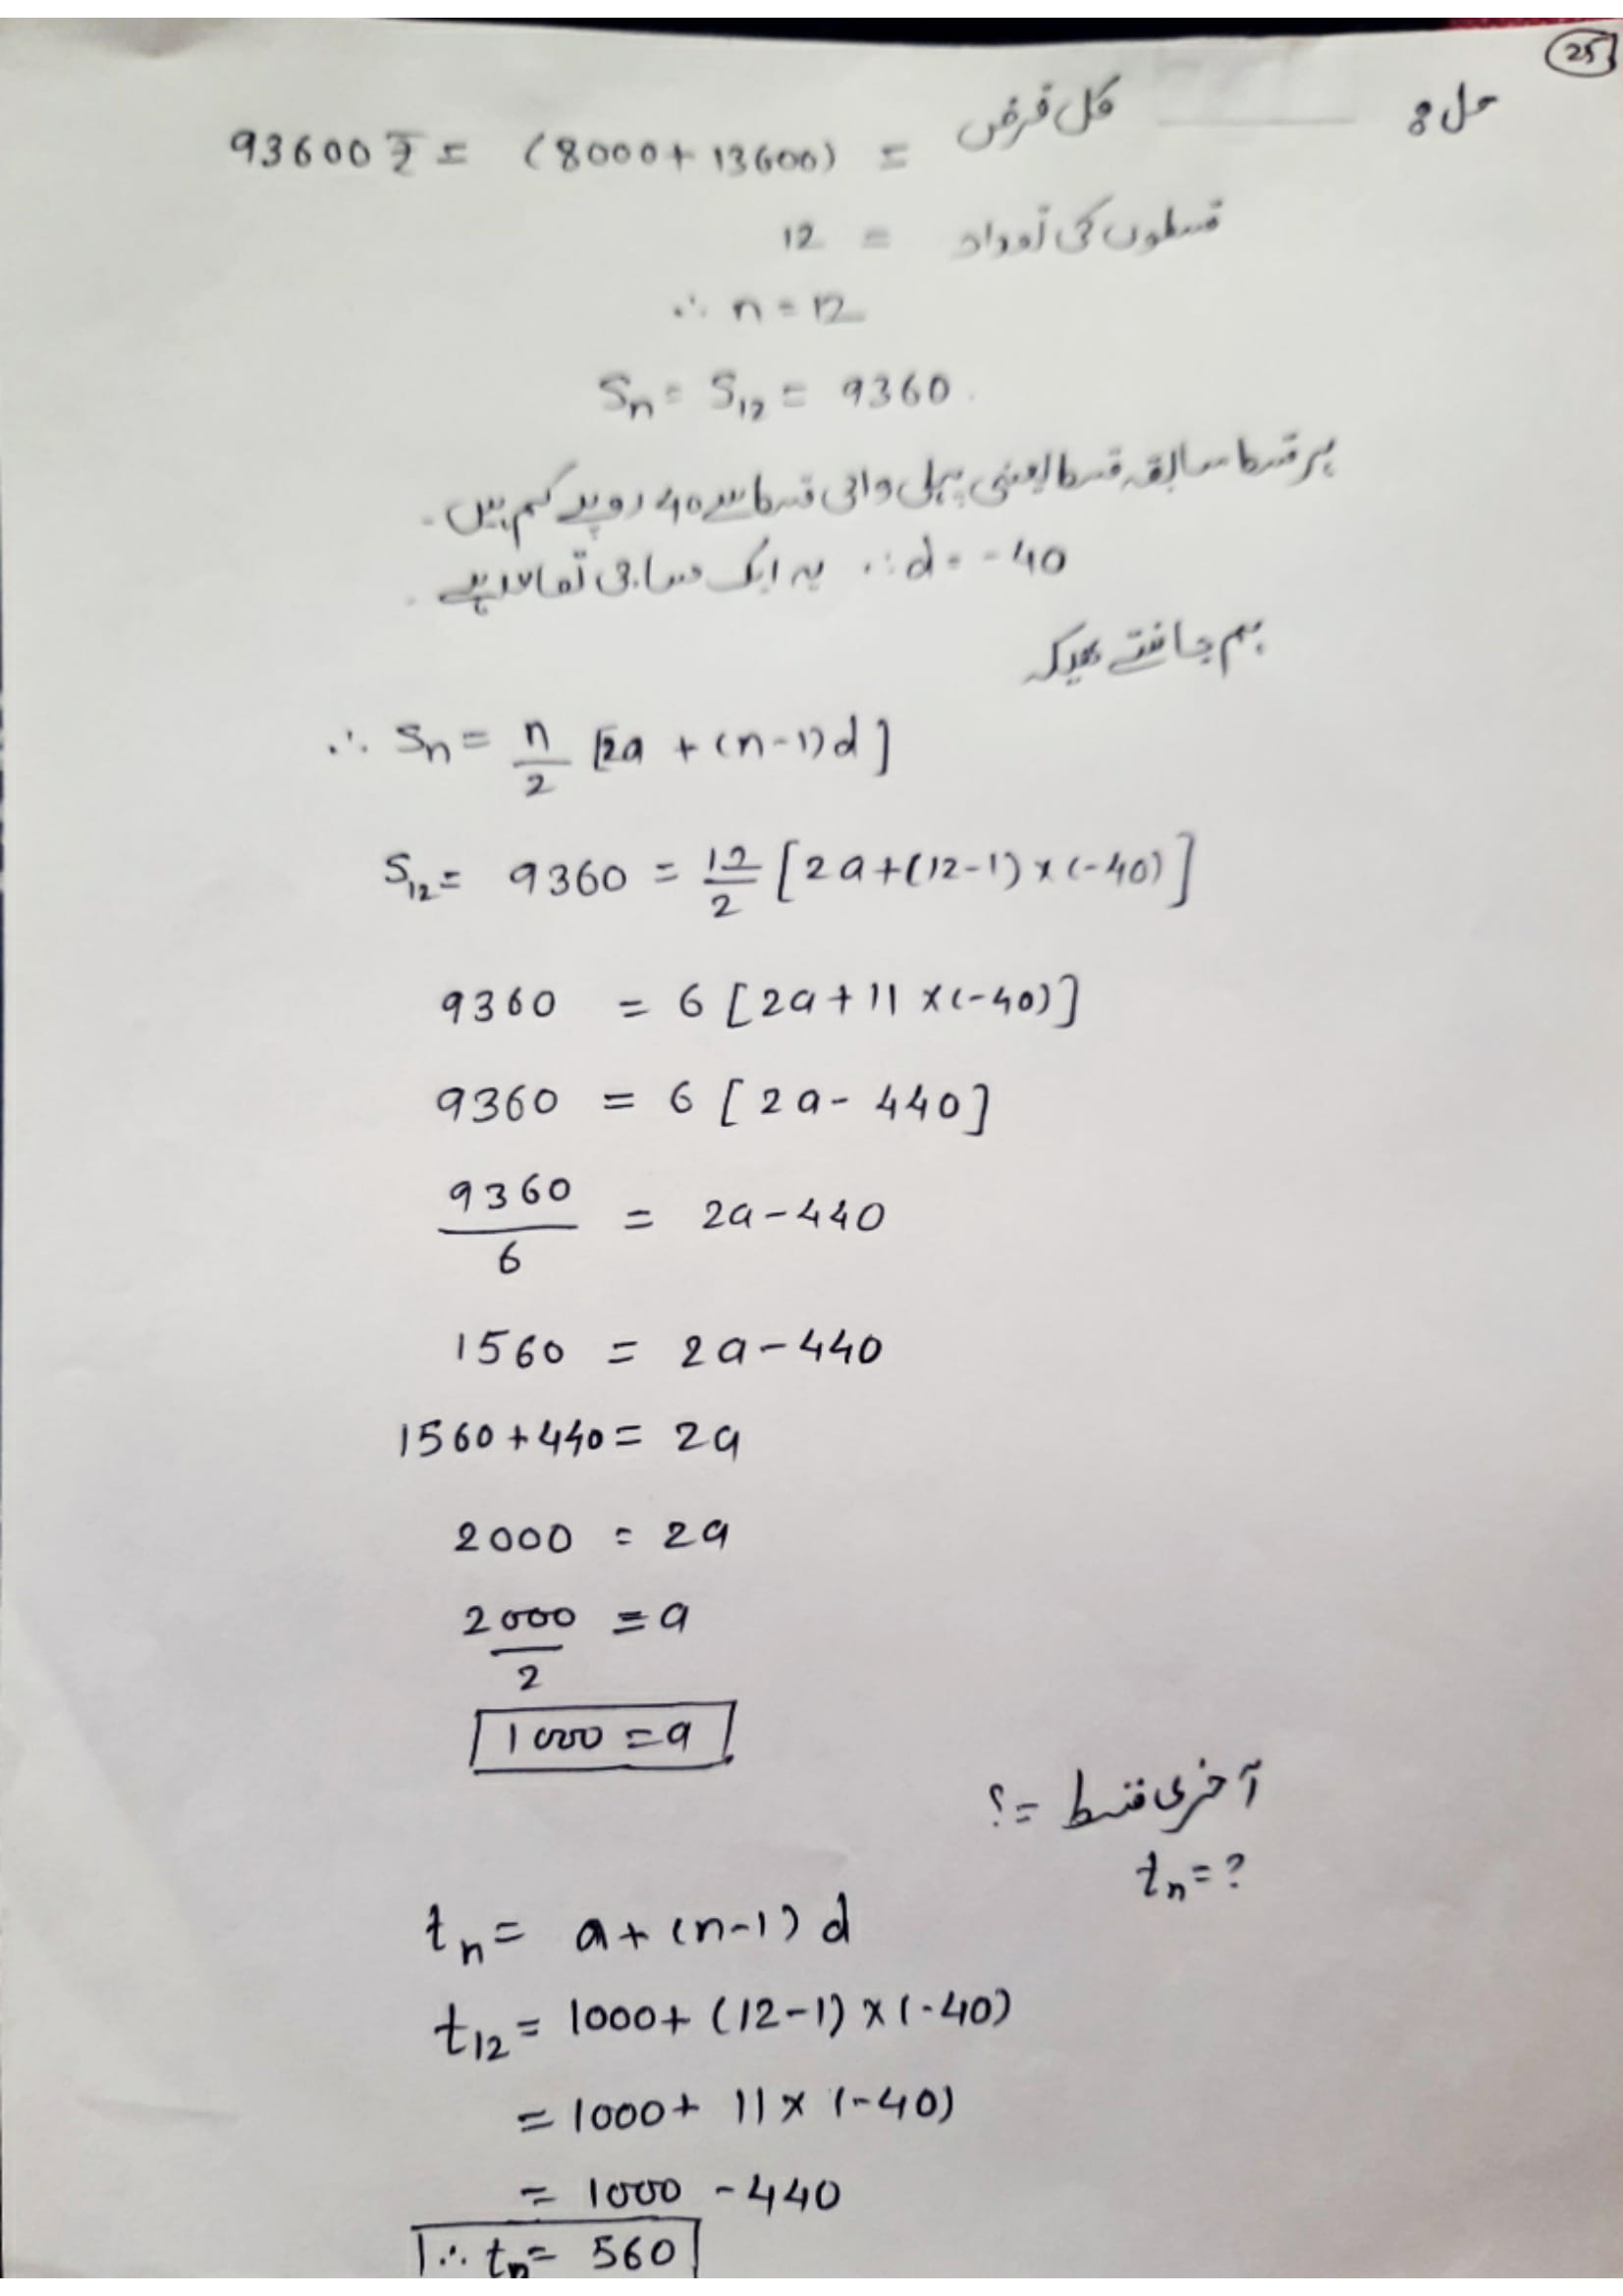 25
حل 8
93600 ₹ = (8000+ 13600) = کل قرض
12 = قسطوں کی تعداد
∴ n = 12
Sn = S12 = 9360.
ہر قسط سابقہ قسط یعنی پہلی والی قسط سے 40 روپے کم ہیں۔
یہ ایک حسابی تصاعد ہے۔ ∴ d = -40
ہم جانتے ہیکہ
∴ Sn = n/2 [2a + (n-1)d]
S12 = 9360 = 12/2 [2a+(12-1) x (-40)]
9360 = 6 [2a+11 x(-40)]
9360 = 6 [2a- 440]
9360/6 = 2a-440
1560 = 2a-440
1560+440 = 2a
2000 = 2a
2000/2 = a
1000 = a
آخری قسط = ؟
tn = ?
tn = a+ (n-1) d
t12 = 1000+ (12-1) x (-40)
= 1000+ 11x (-40)
= 1000 -440
∴ tn = 560